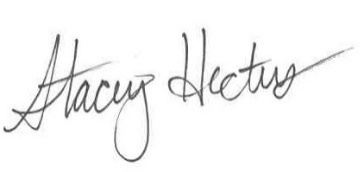 Stacey Hectus